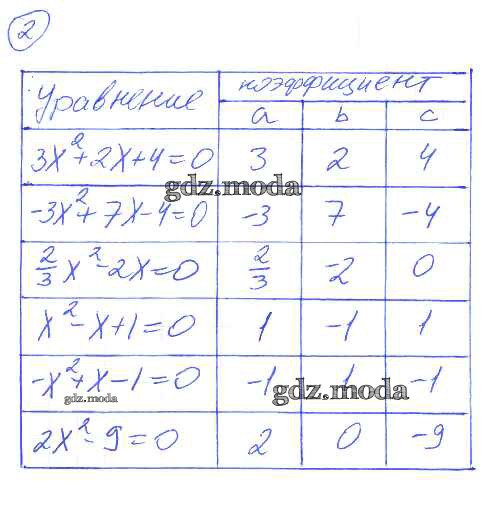 2
Уравнение коэффициент
a b c
3x²+2x+4=0 3 2 4
gdz.moda
-3x²+7x-4=0 -3 7 -4
2/3 x²-2x=0 2/3 -2 0
x²-x+1=0 1 -1 1
-x²+x-1=0 -1 1 -1
gdz.moda
gdz.moda
2x²-9=0 2 0 -9